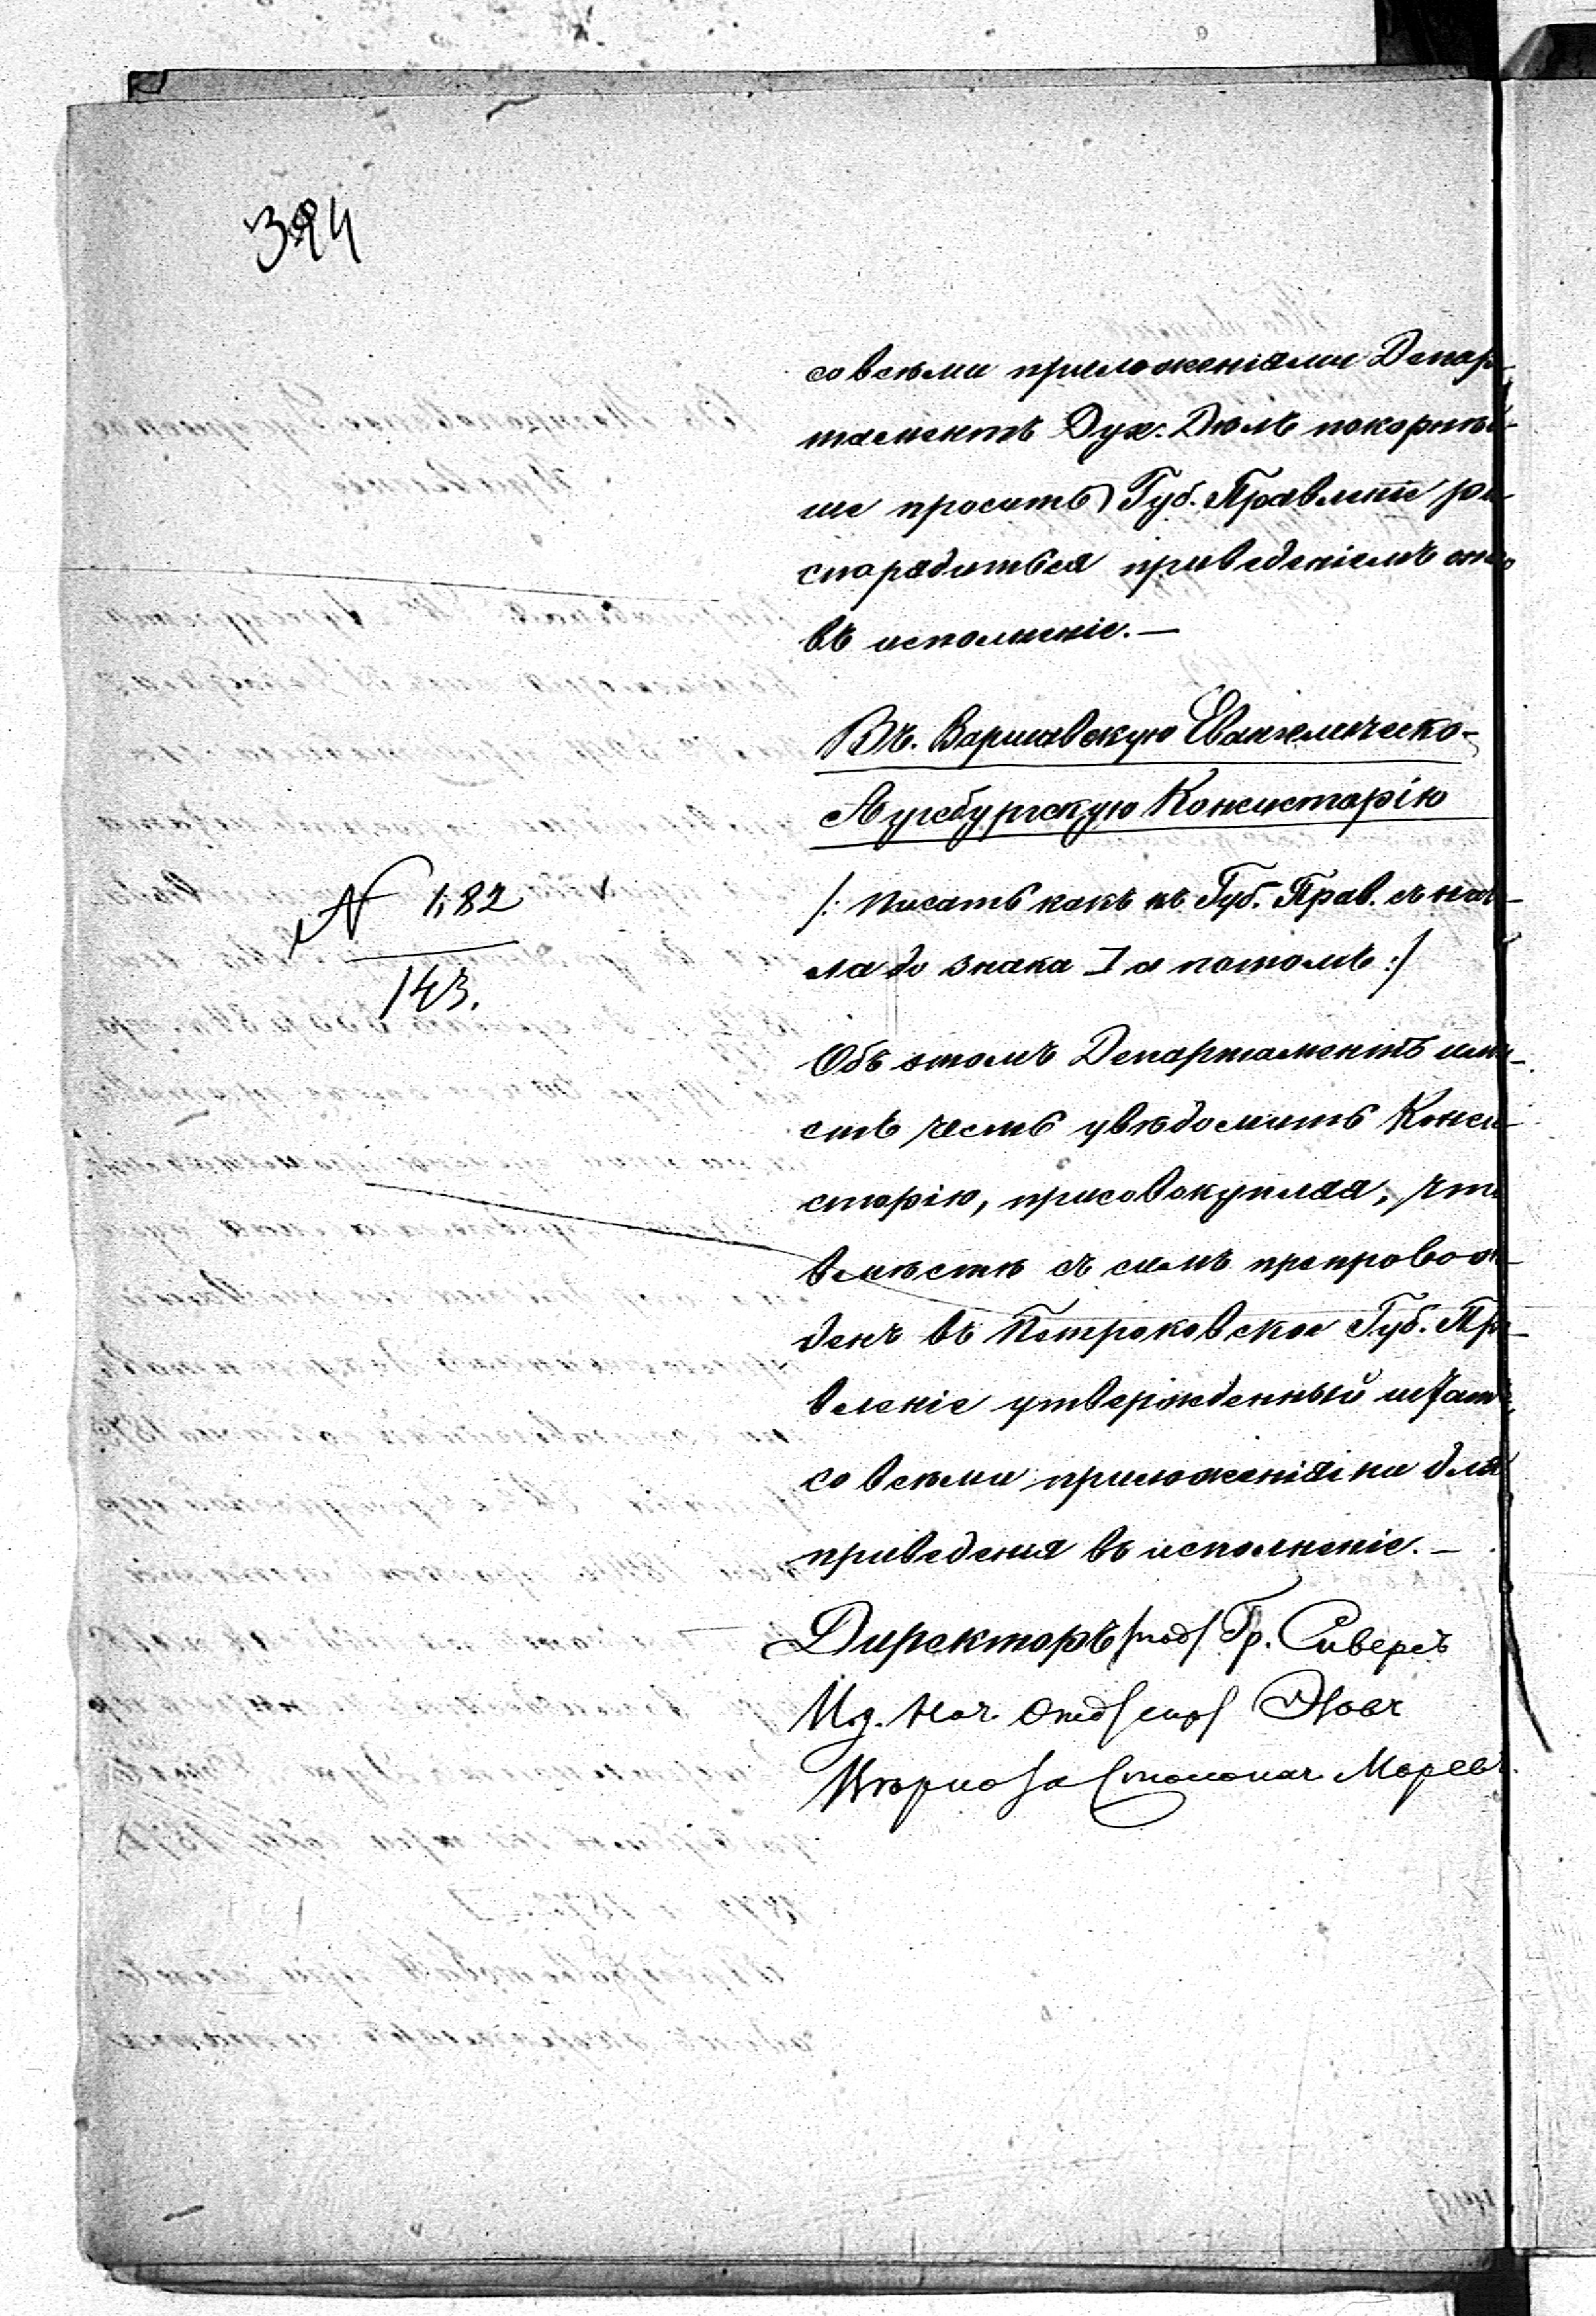 324
со всѣми приложеніями Депар-
таментъ Дух. Дѣлъ покорнѣй-
ше проситъ Губ. Правленіе ра-
спорядиться приведеніемъ
въ исполненіе. —
Въ Варшавскую Евангелическо-
Аугсбургскую Консисторію
№ 182
143.
/: Писать какъ въ Губ. Прав. съ нача-
ла до знака ] а потомъ :/
Объ этомъ Департаментъ имѣ-
етъ честь увѣдомить Конси-
сторію, присовокупляя, что
вмѣстѣ съ симъ препровож-
денъ въ Петроковское Губ. Пра-
вленіе утвержденный штатъ
со всѣми приложеніями для
приведенія въ исполненіе. —
Директоръ /под/ Гр. Сиверсъ
И. д. Нач. Отд /скр/
Вѣрно За Столонач.